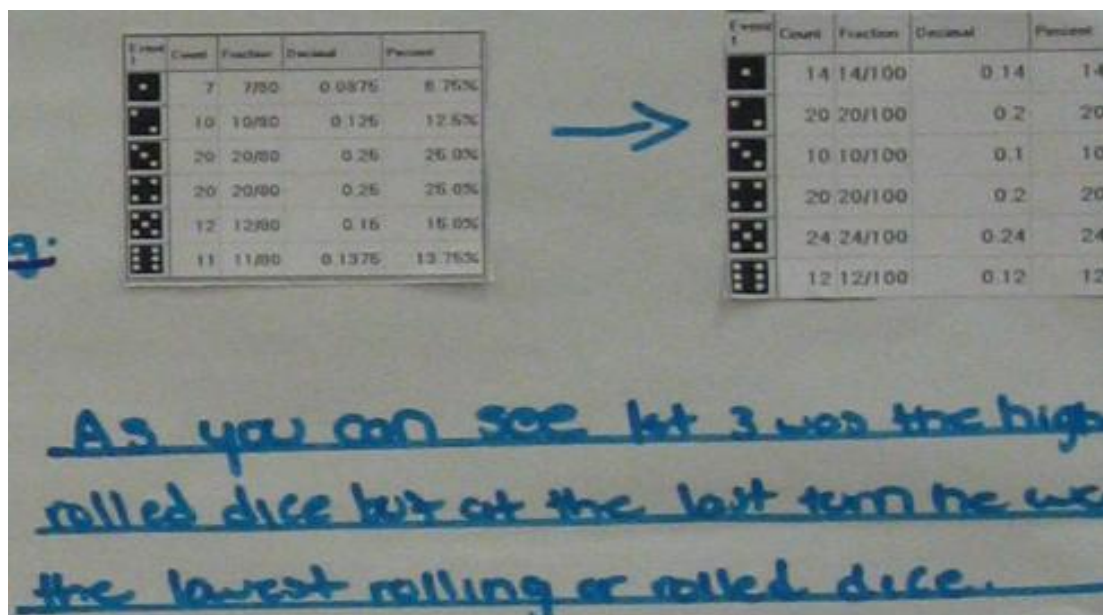 Event 1 Count Fraction Decimal Percent
7 7/80 0.0875 8.75%
10 10/80 0.125 12.5%
20 20/80 0.25 25.0%
20 20/80 0.25 25.0%
12 12/80 0.15 15.0%
11 11/80 0.1375 13.75%
Event 1 Count Fraction Decimal Percent
14 14/100 0.14 14
20 20/100 0.2 20
10 10/100 0.1 10
20 20/100 0.2 20
24 24/100 0.24 24
12 12/100 0.12 12
g:
As you can see 3 was the high
rolled dice but at the last turn he
the lowest rolling or rolled dice.